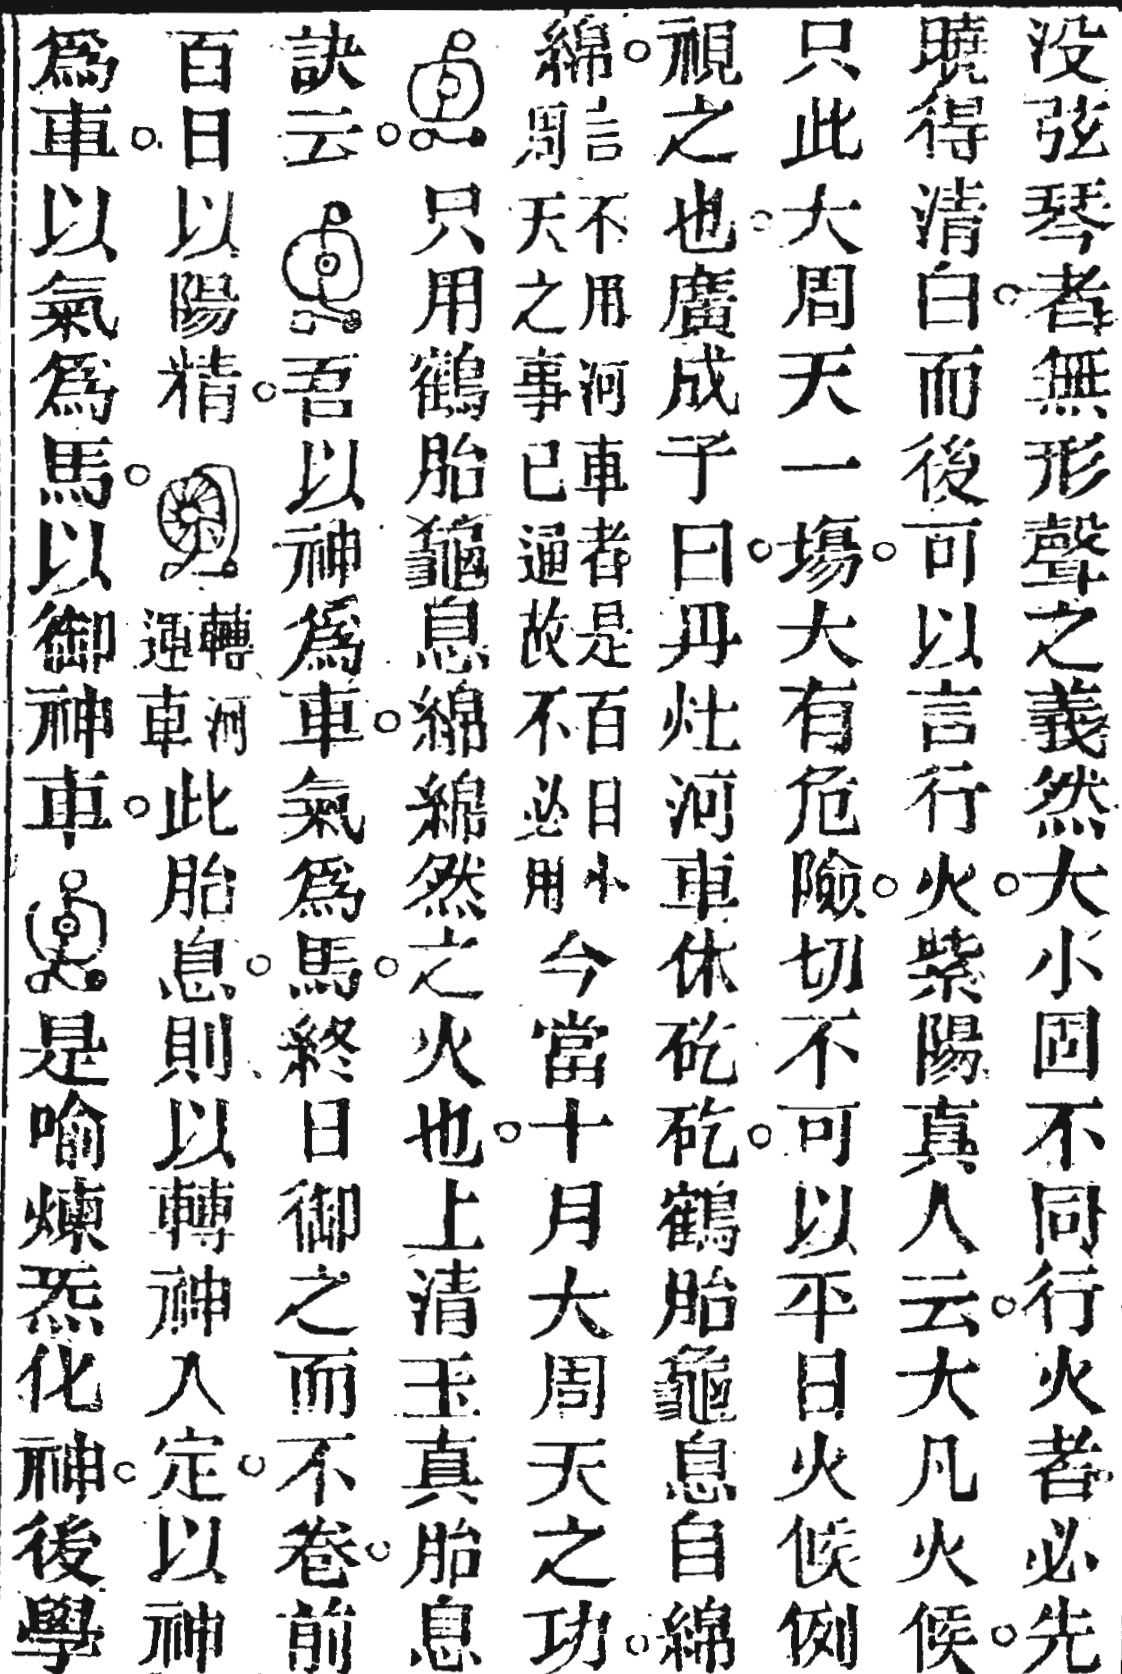 没弦琴者無形聲之義然大小固不同行火者必先
曉得清白而後可以言行火紫陽真人云大凡火候
只此大周天一場大有危險切不可以平日火候例
視之也廣成子曰丹灶河車休矻矻鶴胎龜息自綿
綿言不用河車者是百日小周天之事已過故不必用今當十月大周天之功
只用鶴胎龜息綿綿然之火也上清玉真胎息
訣云吾以神為車氣為馬終日御之而不卷前
百日以陽精轉河運車此胎息則以轉神入定以神
為車以氣為馬以御神車是喻煉炁化神後學